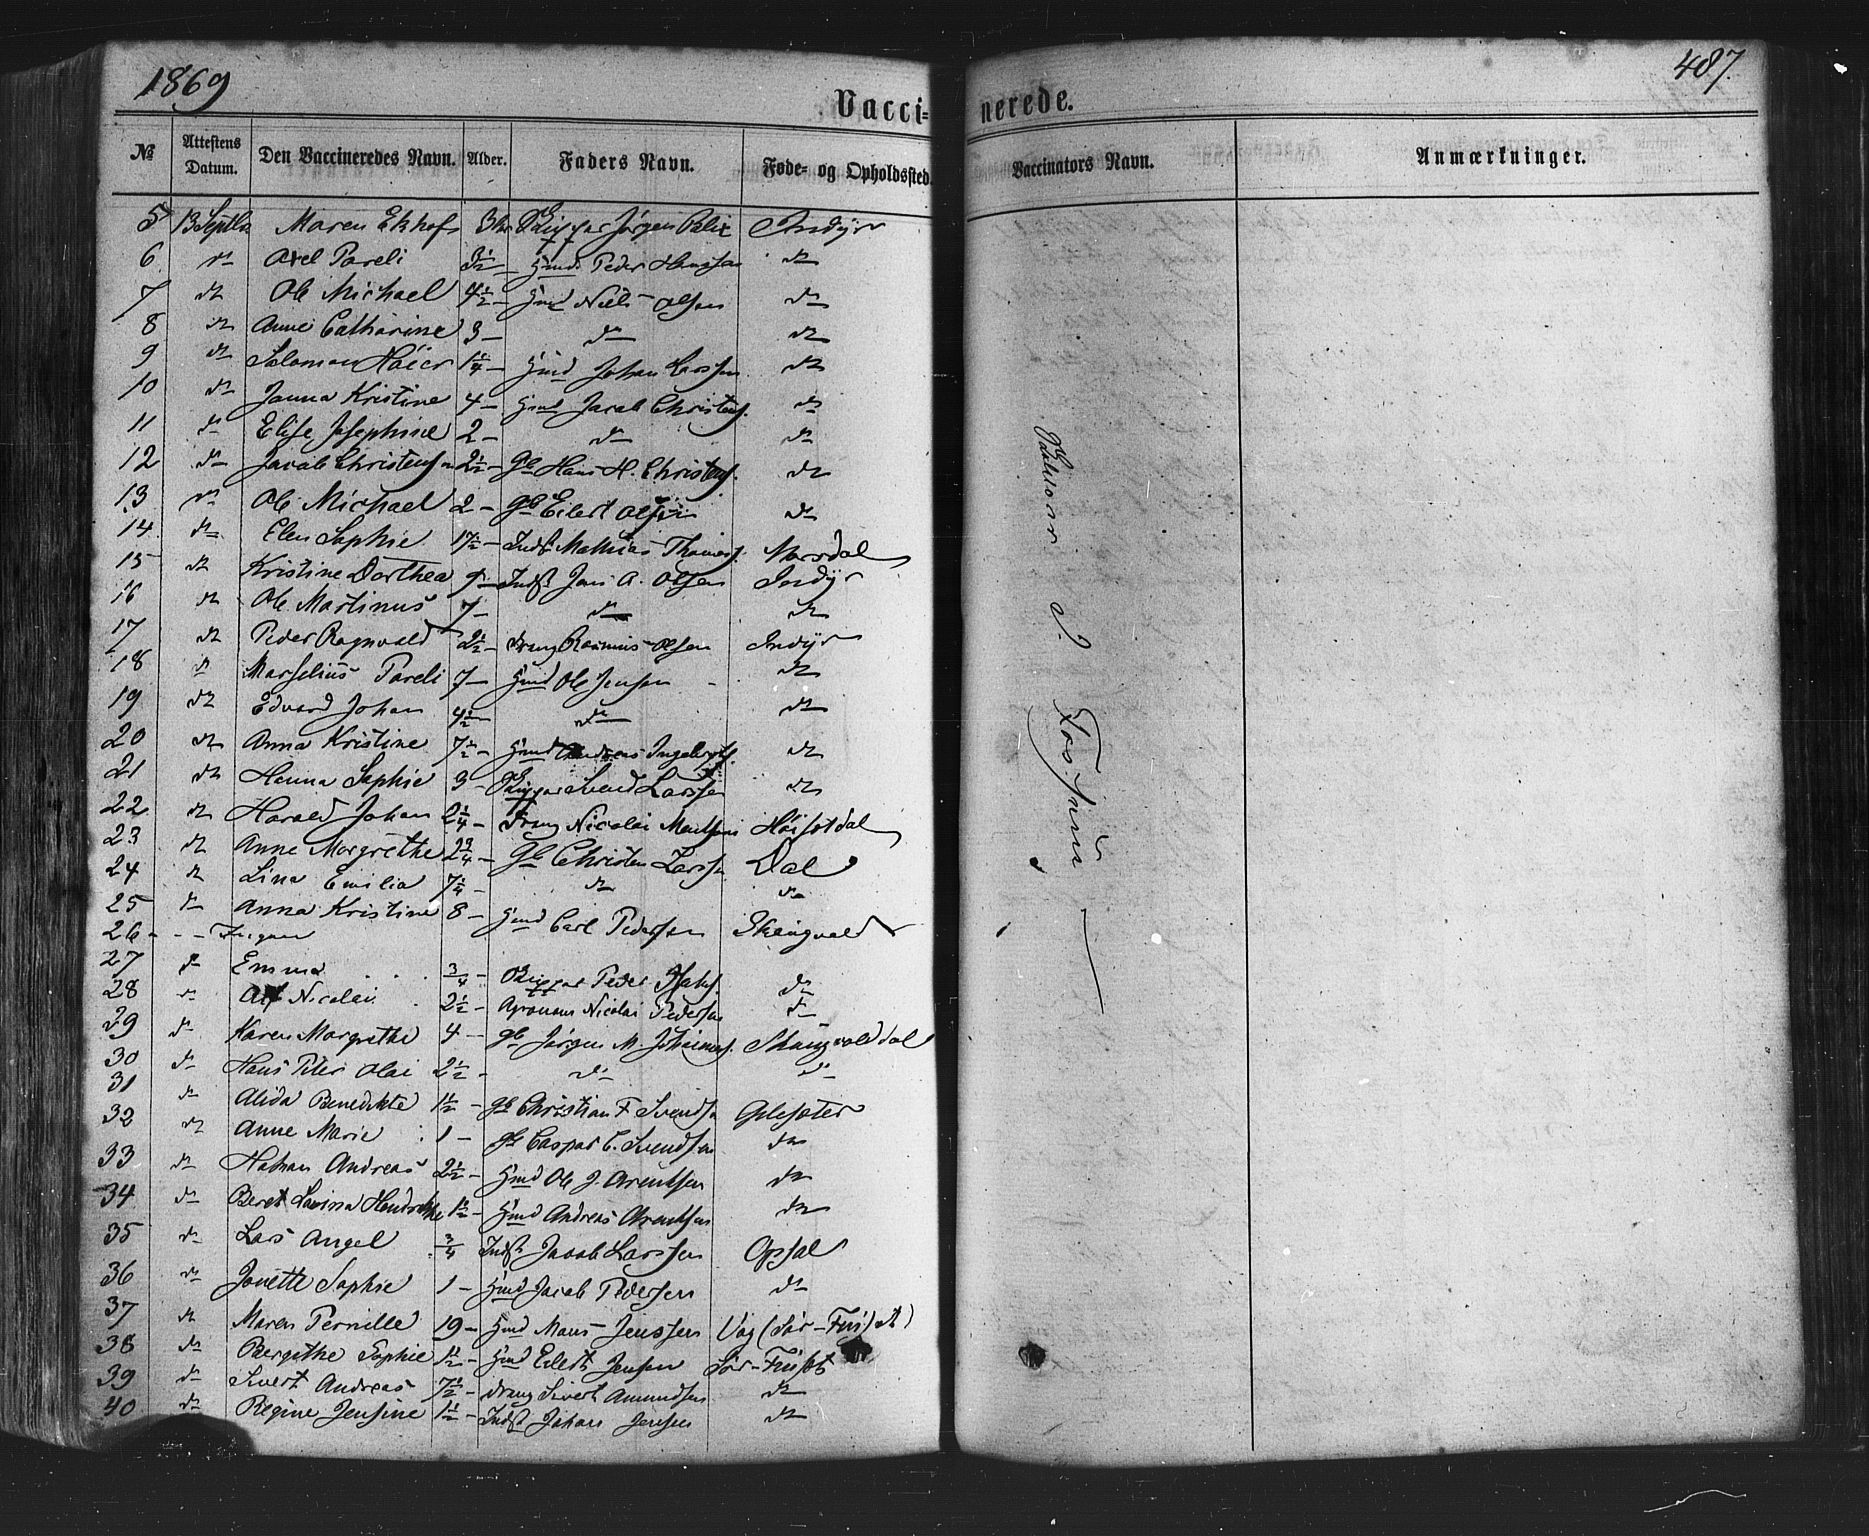 1869
487.
Vacci- nerede.
№ Attestens Datum. Den Vaccineredes Navn. Alder. Faders Navn. Føde- og Opholdssted. Vaccinators Navn. Anmærkninger.
5 13 Septbr Maren Ekhof 3 Skipper Jørgen Inndyr
6 do Axel Pareli 3½ Gmd. Peder Hanssen do
7 do Ole Michael 4½ - Gmd Niels Olsen do
8 do Anne Catharine 3 - do do
9 do Salomon Høier 1¼ - Gmd Johan Larssen do
10 do Janna Kristine 4 - Gmd Jacob Christens. do
11 do Elise Josephine 2 - do do
12 do Jacob Christensen 2½ - Gb Hans H. Christens. do
13 do Ole Michael 2 - Gb Eilert Olsen do
14 do Elen Sophie 17½ - Indst Mathias Thomess.
15 do Kristine Dorthea 9 - Indst Jens A. Olsen Inndyr
16 do Ole Martinus 7 - do do
17 do Peder Ragnvald 2½ - Dreng Rasmus Olsen Inndyr
18 do Marselius Pareli 7 - Gmd Ole Jensen do
19 do Edvard Johan 4½ - do do
20 do Anna Kristine 7½ - Gmd Andreas Ingebrigts. do
21 do Hanna Sophie 3 - Skipper Svend Larssen do
22 do Harald Johan 2¼ - Dreng Nicolai
23 do Anne Margrethe 2¾ - Gb Christen Larssen Dal
24 do Lina Emilia 7¼ - do do
25 do Anna Kristine 8 - Gmd Carl Pedersen
26 - - - Ingen
27 do Emma ¾ - Skipper Peder do
28 do Alf Nicolai 2½ - Nicolai Pedersen do
29 do Karen Margrethe 4 - Gb Jørgen M. Johannes.
30 do Hans Peter Olai 2½ - do do
31 do Alida Benedikte 1½ - Gb Christian F Svendsen Gilesæter
32 do Anne Marie 1 - Gb Caspar C. Svendsen do
33 do Hakan Andreas 2½ - Gmd Ole J. Arentsen do
34 do Beret Lovina Hendrikke 1½ - Gmd Andreas Arentsen do
35 do Lars Angel ¾ Indst Jacob Larssen Opsal
36 do Jonette Sophie 1 - Gmd Jacob Pedersen do
37 do Maren Pernille 19 - Gmd Mons Jenssen Vog (Sør-
38 do Bergithe Sophie 1½ - Gmd Eilert Jensen Sør-
39 do Sivert Andreas 7½ - Dreng Sivert Amundsen do
40 do Regine Jensine 1½ - Indst Johan Jensen do